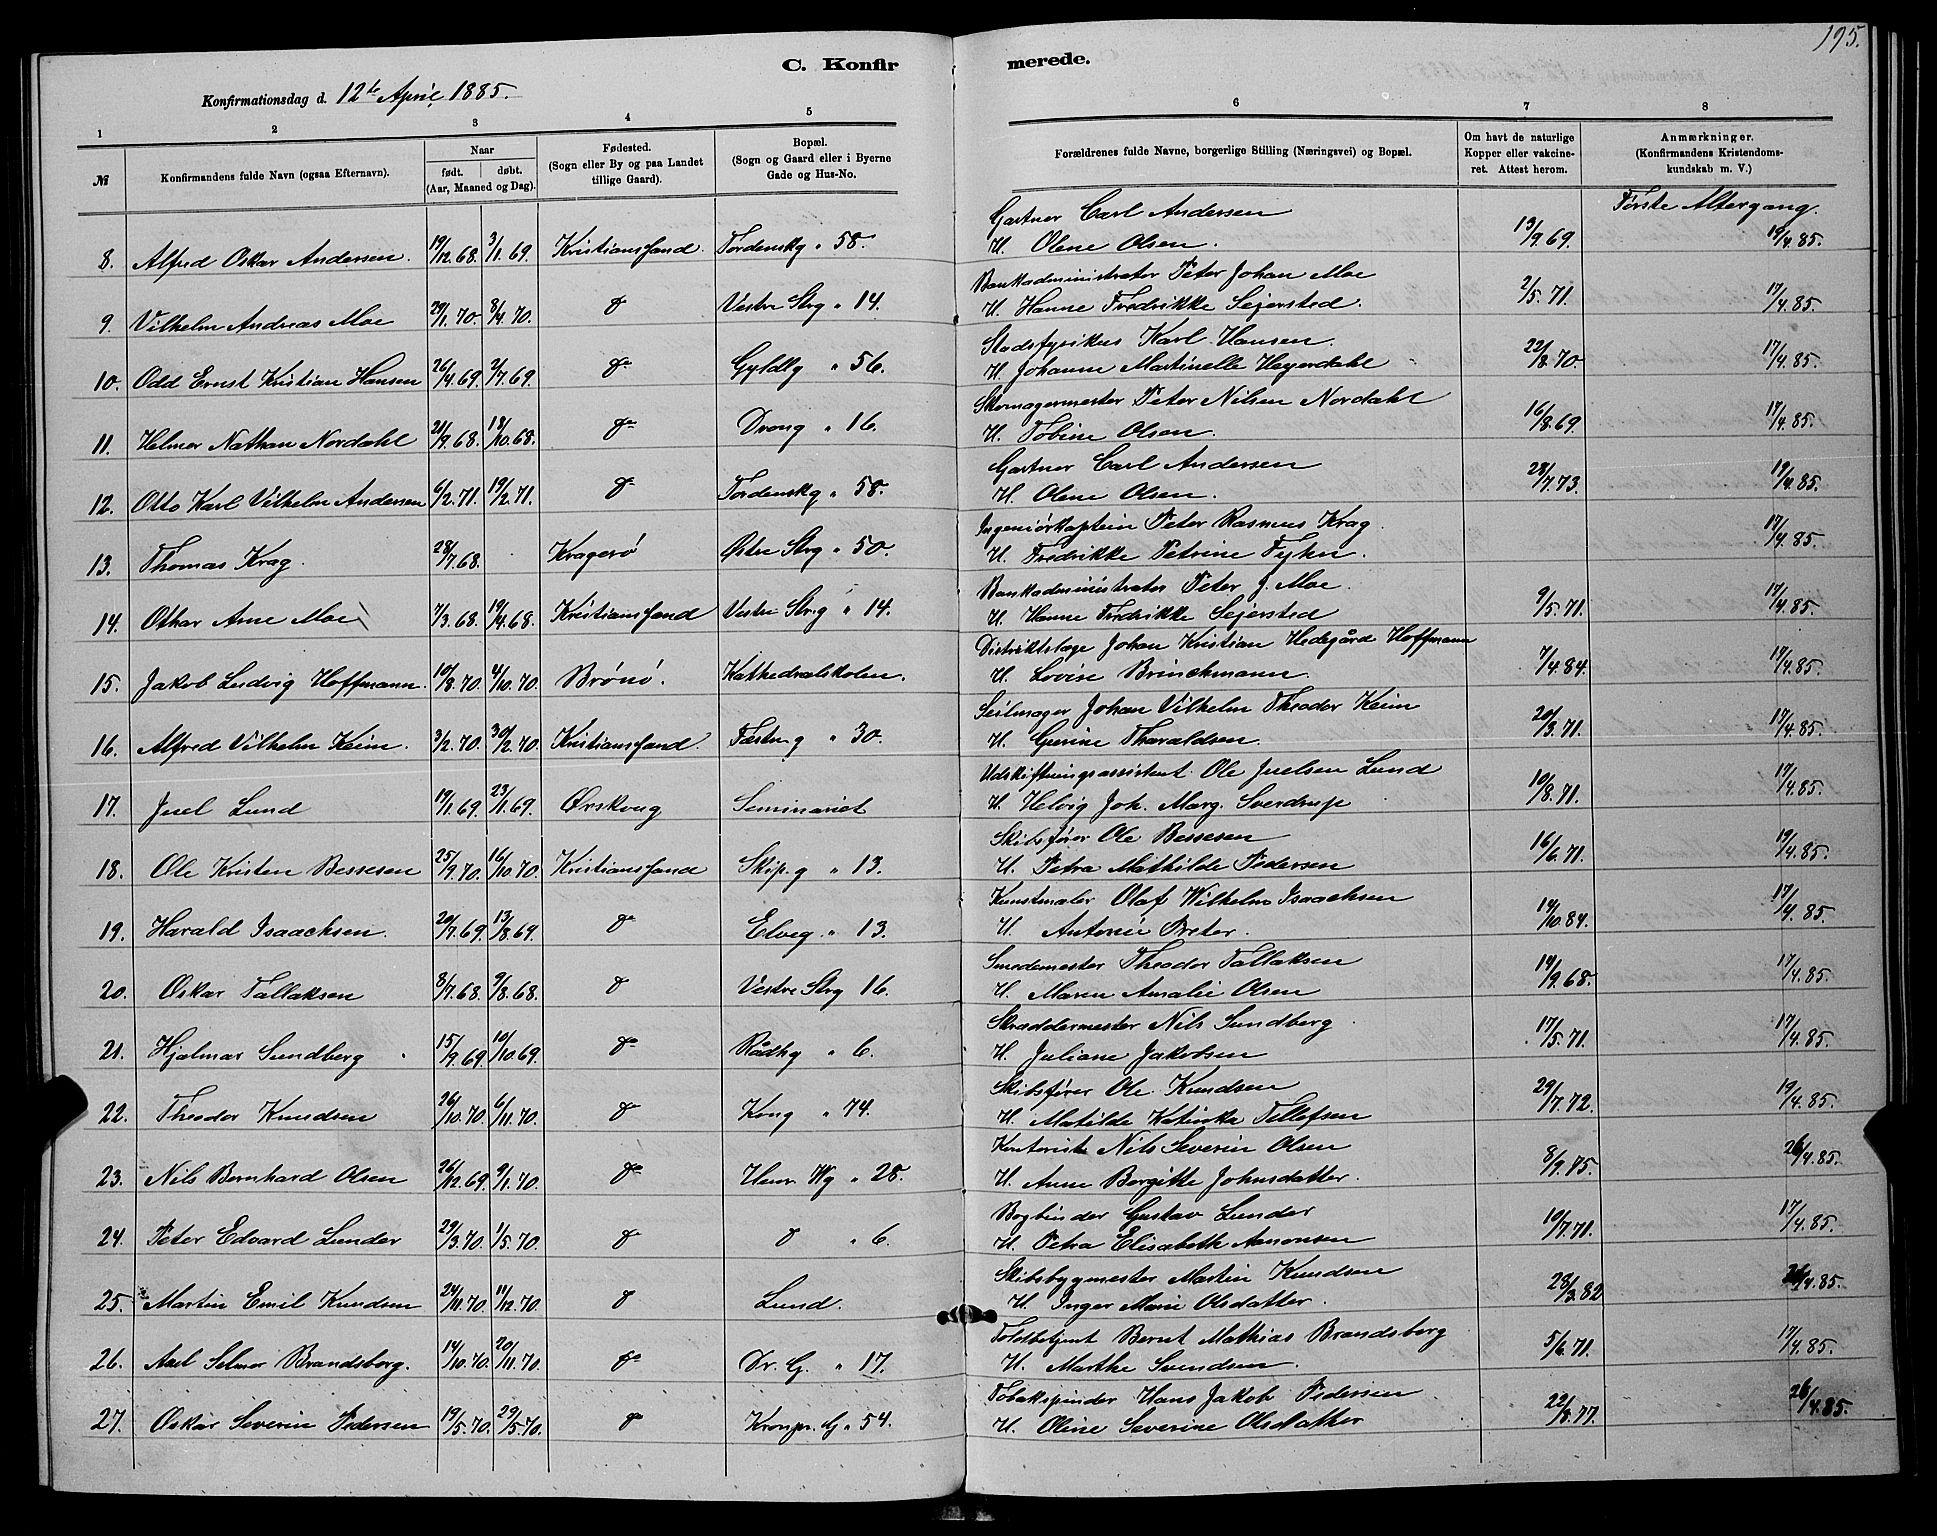 195.
C. Konfir merede.
Konfirmationsdag d. 12te April 1885.
1 2 3 4 5 6 7 8
№ Konfirmandens fulde Navn (ogsaa Efternavn). Naar født. døbt. (Aar, Maaned og Dag). Fødested. (Sogn eller By og paa Landet tillige Gaard). Bopæl. (Sogn og Gaard eller i Byerne Gade og Hus-No. Forældrenes fulde Navne, borgerlige Stilling (Næringsvei) og Bopæl. Om havt de naturlige Kopper eller vakcineret. Attest herom. Anmærkninger. (Konfirmandens Kristendomskundskab m. V.)
Første Altergang.
Gartner Carl Andersen
8. Alfred Oskar Andersen. 19/12.68. 3/1.69. Kristianssand. Tordenskg " 58. H. Olene Olsen. 13/9.69. 19/4.85.
Bankadministrator Peter Johan Moe
9. Vilhelm Andreas Moe 29/1.70. 8/4.70. do Vestre Strg " 14. H. Hanne Fredrikke Sejersted. 2/5.71. 17/4.85.
Stadsfysikus Karl Hansen.
10. Odd Ernst Kristian Hansen 26/4.69. 2/7.69. do Gyldlg " 56. H. Johanne Martinelle Heyerdahl 22/8.70. 17/4.85.
Skomagermester Peter Nilsen Nordahl
11. Helmer Nathan Nordahl 21/9.68. 18/10.68. do Drong " 16. H. Tobine Olsen. 16/8.69. 17/4.85.
Gartner Carl Andersen
12. Otto Karl Vilhelm Andersen 6/2.71. 19/2.71. do Tordenskg " 58. H. Olene Olsen. 28/7.73. 19/4.85.
Ingeniørkaptein Peter Rasmus Krag.
13. Thomas Krag. 28/7.68. Kragerø Østre Strg " 50. H. Fredrikke Petrine Fejhn. 17/4.85.
Bankadministrator Peter J. Moe.
14. Othar Arne Moe 7/3.68. 19/4.68. Kristianssand Vestre Strg " 14. H. Hanne Fredrikke Sejersted 9/5.71. 17/4.85.
Distriktslæge Johan Kristian Hedegård Hoffmann
15. Jakob Ludvig Hoffmann. 10/8.70. 4/10.70. Brønø. Kathedralskolen. H. Lovise Brinckmann. 7/4.84. 19/4.85.
Seilmager Johan Vilhelm Theodor Keim
16. Alfred Vilhelm Keim. 3/2.70. 30/2.70. Kristianssand. Fæstn.g " 30. H. Gurine Tharaldsen. 20/3.71. 17/4.85.
Udskiftningsassistent Ole Juelsen Lund
17. Juel Lund 19/1.69. 23/1.69. Ørskoug Seminariet H. Helvig Joh. Marg. Sverdrup 10/8.71. 17/4.85.
Skibsfører Ole Bessesen
18. Ole Kristen Bessesen 25/9.70. 16/10.70. Kristianssand Skip.g " 13. H. Petra Mathilde Pedersen 16/6.71. 19/4.85.
Kunstmaler Olaf Wilhelm Isaachsen
19. Harald Isaachsen. 20/7.69. 13/8.69. do Elveg. " 13. H. Antonie 14/10.84. 17/4.85.
Smedemester Theodor Tallaksen
20. Oskar Tallaksen 8/7.68. 9/8.68. do Vestre Strg 16. H. Maren Amalie Olsen 14/9.68. 17/4.85.
Skræddermester Nils Sundberg
21. Hjalmar Sundberg 15/9.69. 10/10.69. do Rådhg " 6. H. Juliane Jakobsen 17/5.71. 17/4.85.
Skibsfører Ole Knudsen
22. Theodor Knudsen 26/10.70. 6/11.70. do Kong " 74. H. Matilde Katinka Tellefsen 29/7.72. 19/4.85.
Kontorist Nils Severin Olsen
23. Nils Bernhard Olsen 26/12.69. 9/1.70. do Henr. Wg " 28. H. Anne Borgitte Johnsdatter. 8/9.75. 26/4.85.
Bogbinder Gustav Lunder
24. Peter Edvard Lunder 29/3.70. 1/5.70. do do " 6. H. Petra Elisabeth Aanonsen 10/7.71. 17/4.85.
Skibsbygmester Martin Knudsen
25. Martin Emil Knudsen 24/11.70. 11/12.70. do Lund. H. Inger Marie Olsdatter. 28/3.82 /4.85.
Toldbetjent Bernt Mathias Brandsberg
26. Axel Selmer Brandsborg. 14/10.70. 20/11.70. do Dr. G. " 17. H. Marthe Svendsen. 5/6.71. 17/4.85.
Tobakspinder Hans Jakob Pedersen
27. Oskar Severin Pedersen 19/5.70. 29/5.70. do Kronpr. G " 54. H. Oline Severine Olsdatter 22/8.77. 26/4.85.